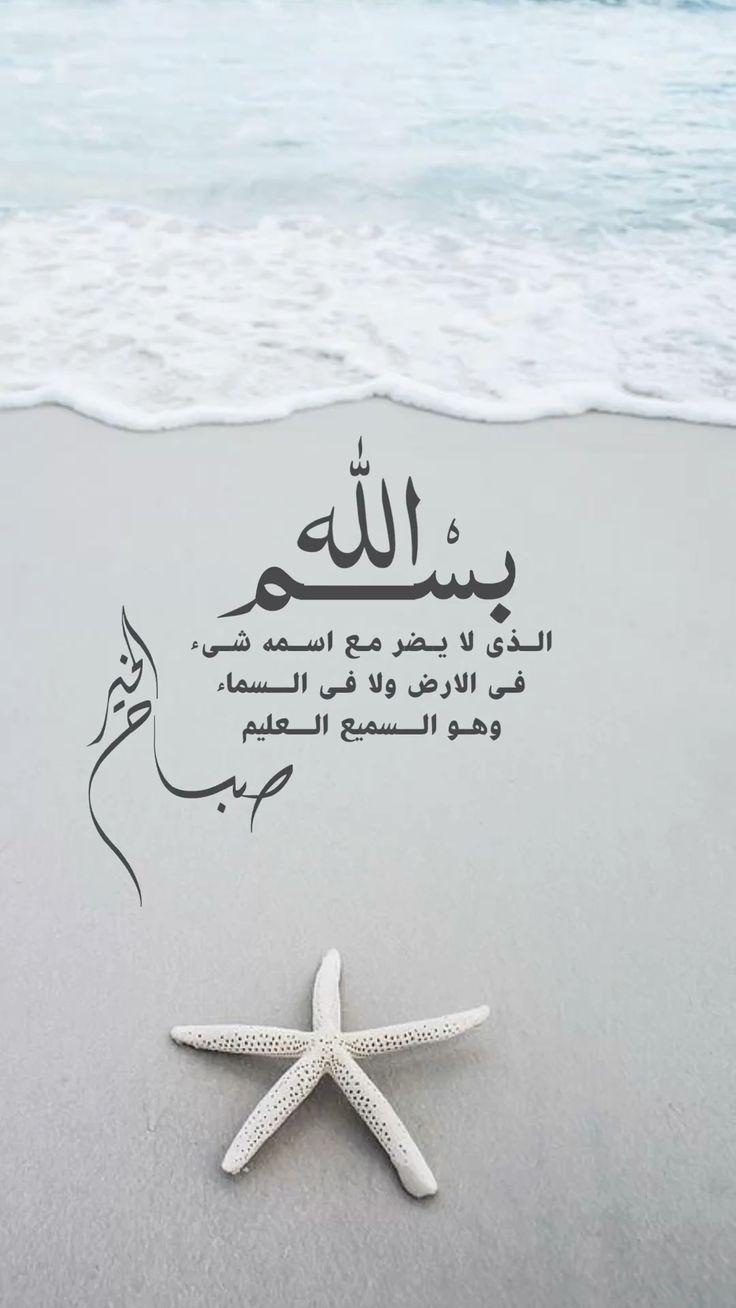 بسم الله
الـذى لا يـضر مـع اسـمه شـىء
فـى الارض ولا فـى الـسماء
وهـو الـسميع الـعليم
صباح
الخير